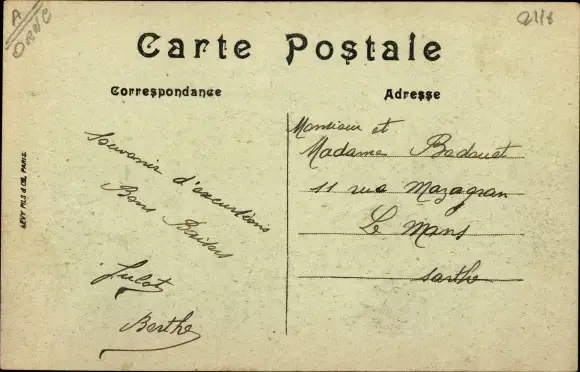 A
ORNE
2118
Carte Postale
Correspondance
Adresse
Souvenir d'excursions
Bons Baisers
Julot
Berthe
Monsieur et
Madame Badouet
11 rue Mazagran
Le Mans
Sarthe
LEVY FILS & CIE, PARIS